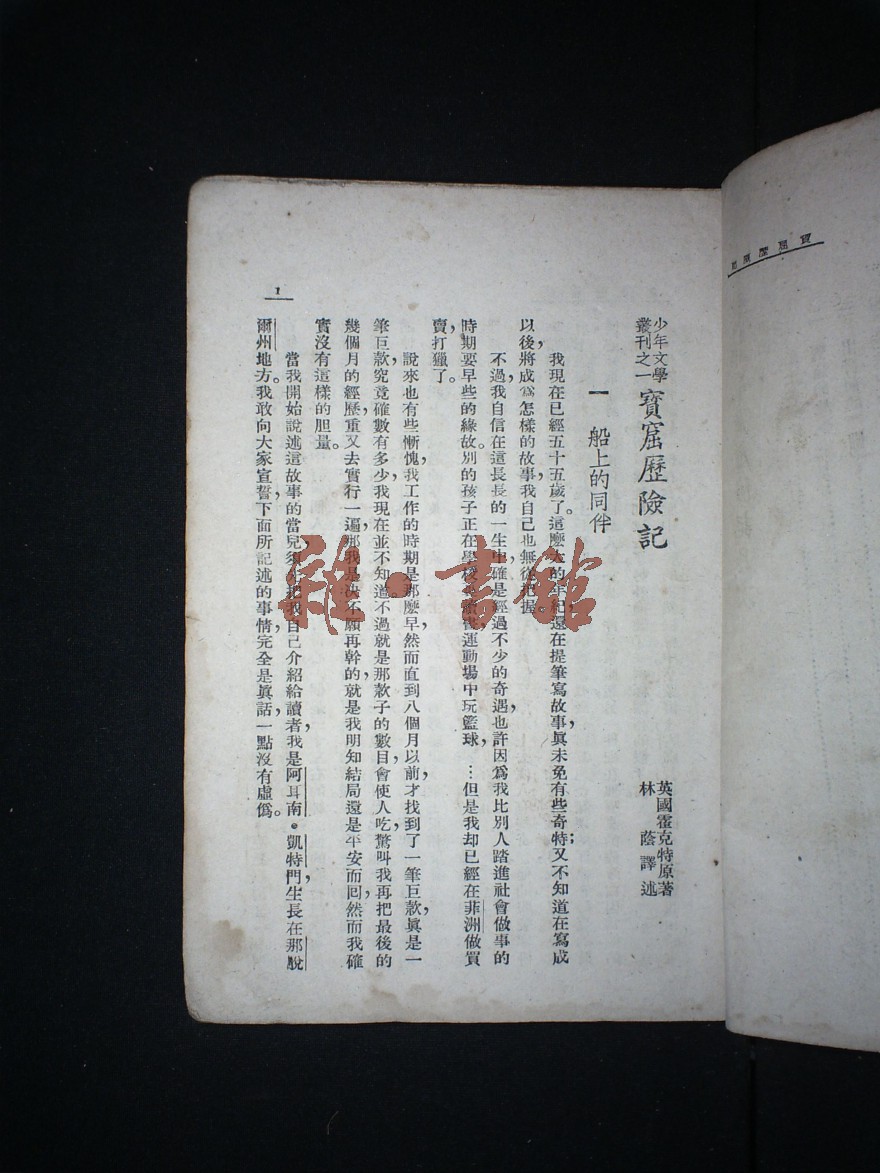 少年文學
叢刊之一
寶窟歷險記
英國霍克特原著
林蔭譯述
一 船上的同伴
我現在已經五十五歲了。這麼大的年紀還在提筆寫故事，眞未免有些奇特；又不知道在寫成
以後，將成爲怎樣的故事，我自己也無從把握
不過，我自信在這長長的一生中，確是經過不少的奇遇，也許因爲我比別人踏進社會做事的
時期要早些的緣故。別的孩子正在學校 運動場中玩籃球，…但是我却已經在菲洲做買
賣，打獵了。
說來也有些慚愧，我工作的時期是那麼早，然而直到八個月以前，才找到了一筆巨款，眞是一
筆巨款，究竟確數有多少，我現在並不知道。不過就是那款子的數目，會使人吃驚，叫我再把最後的
幾個月的經歷，重又去實行一遍，那我是決不願再幹的，就是我明知結局還是平安而囘，然而我確
實沒有這樣的胆量。
當我開始說述這故事的當兒，須先把我自己介紹給讀者，我是阿耳南·凱特門，生長在那脫
爾州地方。我敢向大家宣誓，下面所記述的事情，完全是眞話，一點沒有虛僞。
1
寶窟歷險記
雜·書館